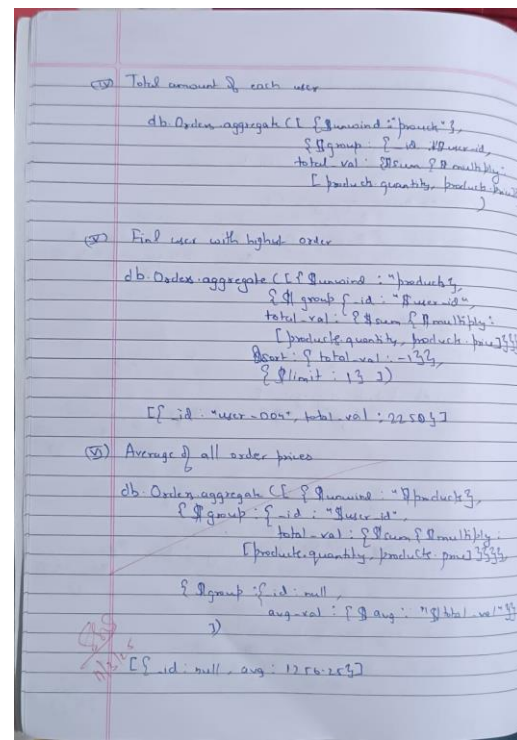 (IV) Total amount of each user
db.Orders.aggregate ([ { $unwind : "prouch" },
{ $group : { _id : "$user_id,
total_val : { $sum { $multiply :
[ product.quantity, product.price
)
(V) Find user with highest order
db.Orders.aggregate ([ { $unwind : "products },
{ $ group { _id : "$user_id",
total_val : { $sum { $multiply :
[ products.quantity, product.price ] } } }
$sort : { total_val : -1 } },
{ $limit : 1 } ])
[ { _id : "user_004", total_val : 2250 } ]
(VI) Average of all order prices
db.Orders.aggregate ([ { $unwind : "$products },
{ $group : { _id : "$user_id",
total_val : { $sum { $multiply :
[ products.quantity, products.price ] } } } },
{ $group : { _id : null,
avg_val : { $ avg : "$total_val" } }
])
[ { _id : null, avg : 1256.25 } ]